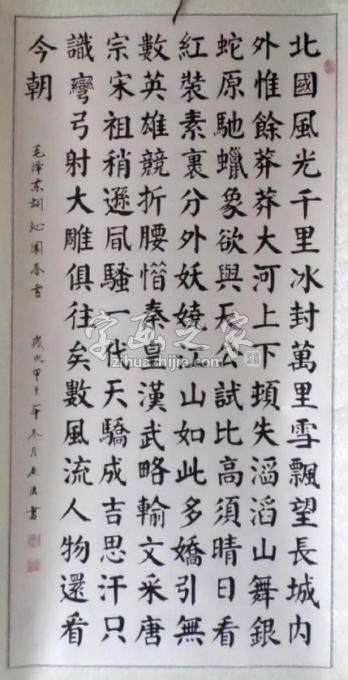 北國風光千里冰封萬里雪飄望長城內
外惟餘莽莽大河上下頓失滔滔山舞銀
蛇原馳蠟象欲與天公試比高須晴日看
紅裝素裹分外妖嬈江山如此多嬌引無
數英雄競折腰惜秦皇漢武略輸文采唐
宗宋祖稍遜風騷一代天驕成吉思汗只
識彎弓射大雕俱往矣數風流人物還看
今朝
毛澤东詞沁園春雪
歲次甲午年冬月書
字画之家
zihuazhijia.com